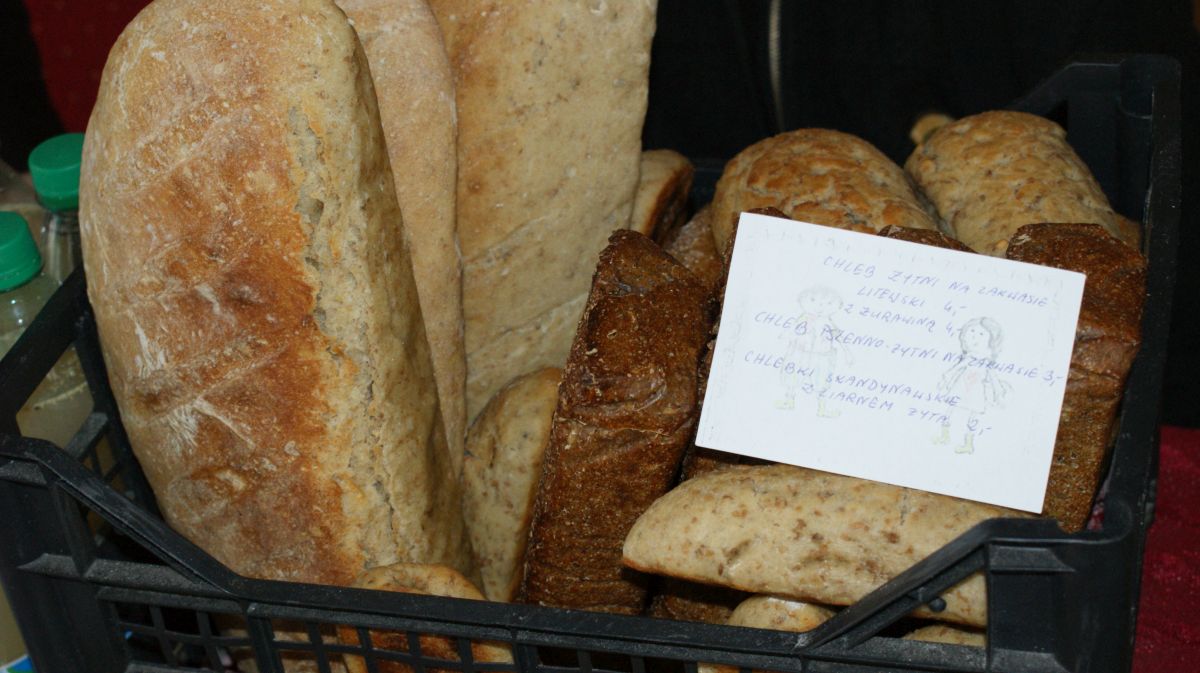 CHLEB ŻYTNI NA ZAKWASIE
LITEWSKI 4,-
Z ŻURAWINĄ 4,-
CHLEB PSZENNO-ŻYTNI NA ZAKWASIE 3,-
CHLEBKI SKANDYNAWSKIE
Z ZIARNEM ŻYTA 2,-